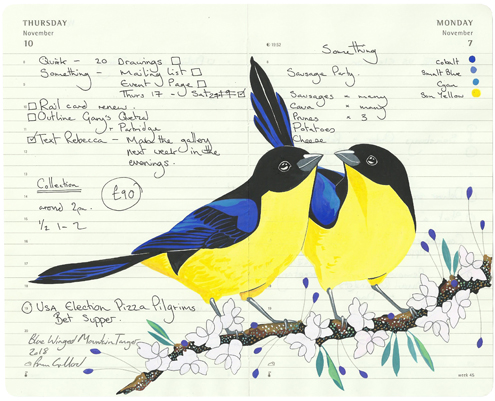 THURSDAY
November
10
Quick - 20 Drawings
Something - Mailing List
Event Page
Thurs 17 -
Rail card renew.
Outline Gary's Quetzal
+ Partridge
Text Rebecca - Make the gallery
next week in the
evenings.
Collection
around 2pm.
1/2 1 - 2
£90
USA Election Pizza Pilgrims
Bet Supper.
Blue Winged Mountain Tanager
2018
MONDAY
November
7
Something
Sausage Party.
Sausages × many
Cava × many
Prunes × 3
Potatoes
Cheese
Cobalt
Smalt Blue
Cyan
Sun Yellow
week 45